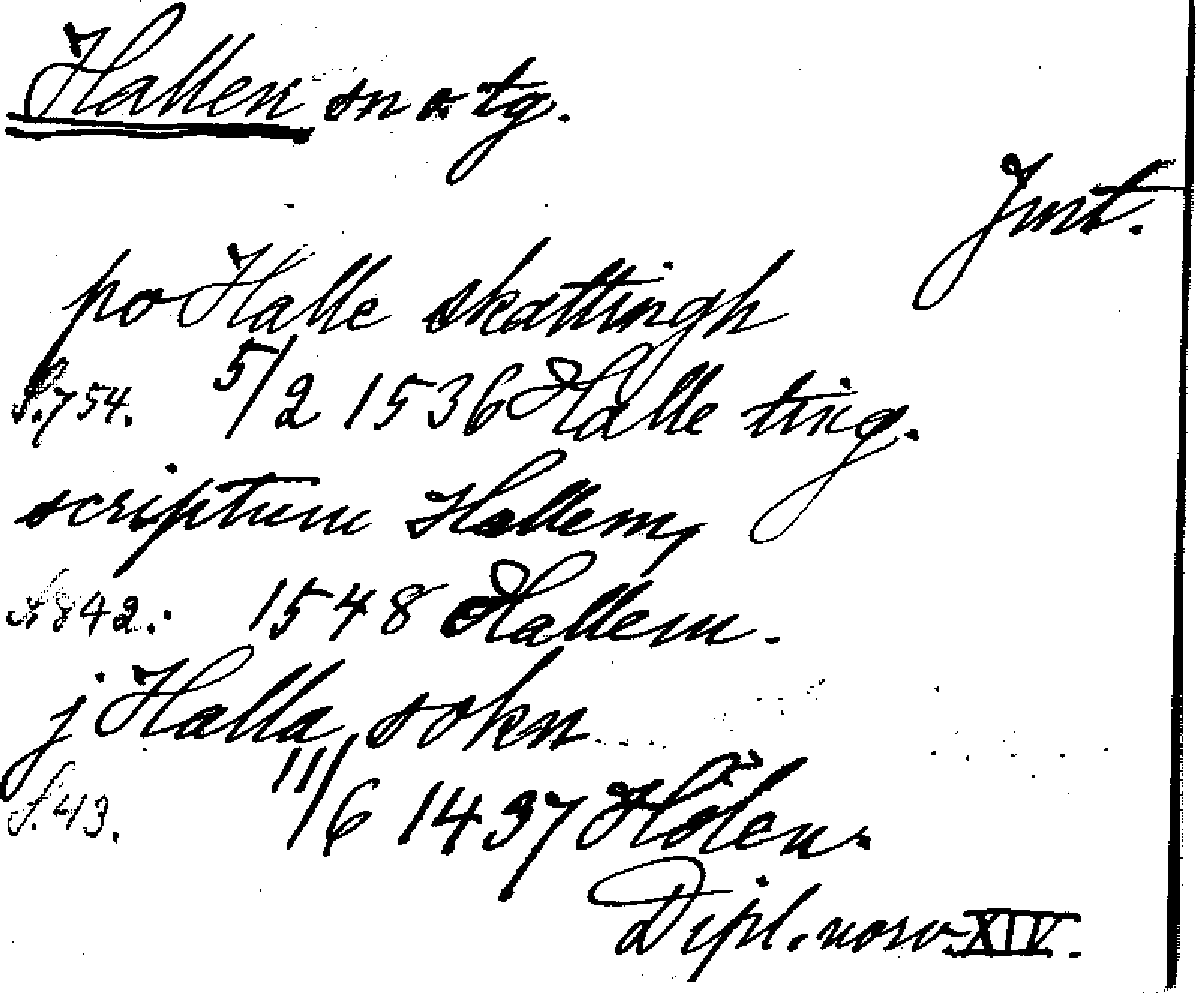 Hallen sn o. tg.
Jmt.
po Halle skattingh
S. 754. 5/2 1536 Halle ting.
scriptum Hallem,
S. 842. 1548 Hallem.
j Halla sokn
S. 43. 11/6 1437 Hölen.
Dipl. norv. XIV.